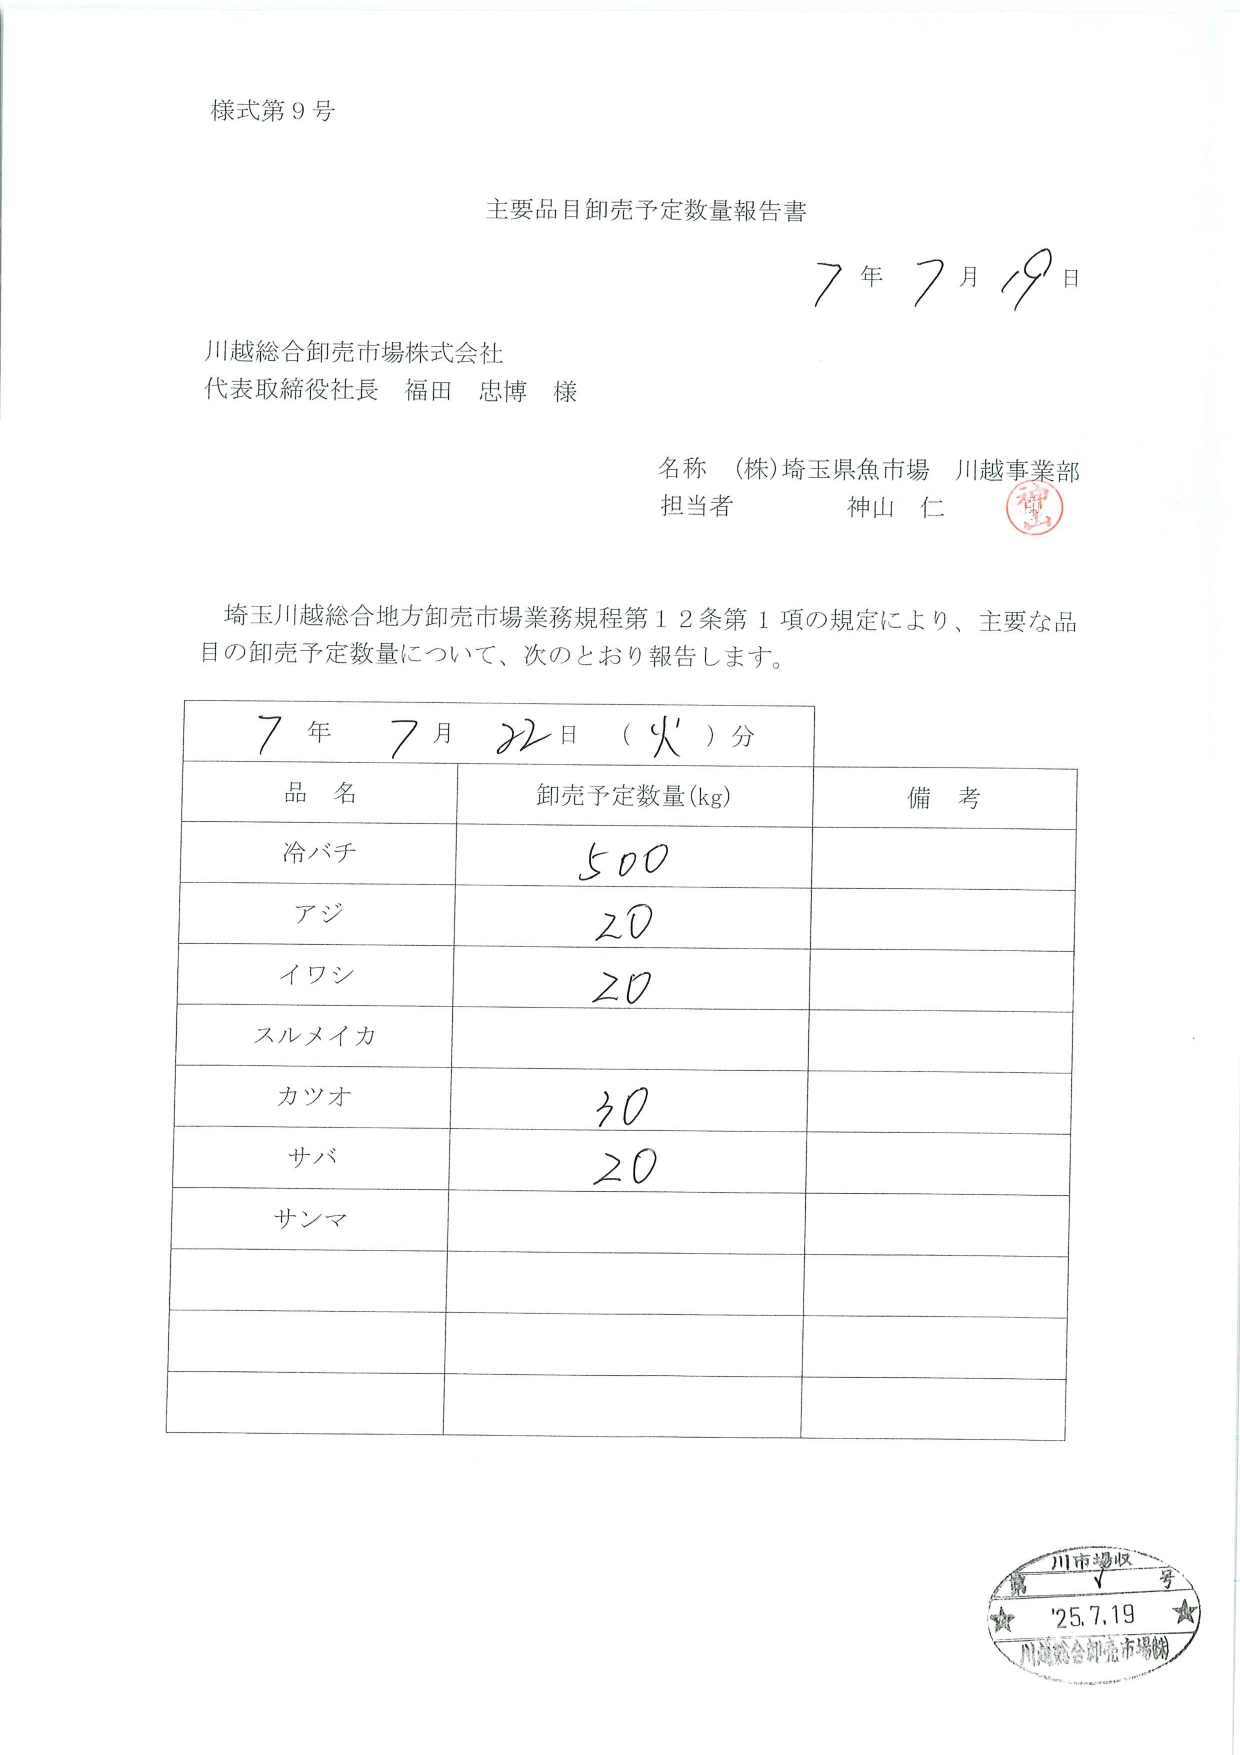 様式第9号
主要品目卸売予定数量報告書
7年7月19日
川越総合卸売市場株式会社
代表取締役社長 福田 忠博 様
名称 (株)埼玉県魚市場 川越事業部
担当者 神山 仁 神山
埼玉川越総合地方卸売市場業務規程第12条第1項の規定により、主要な品
目の卸売予定数量について、次のとおり報告します。
7年 7月 22日 (火)分
品 名 卸売予定数量(kg) 備 考
冷バチ 500
アジ 20
イワシ 20
スルメイカ
カツオ 30
サバ 20
サンマ
川市場収
第 号
'25.7.19
川越総合卸売市場(株)